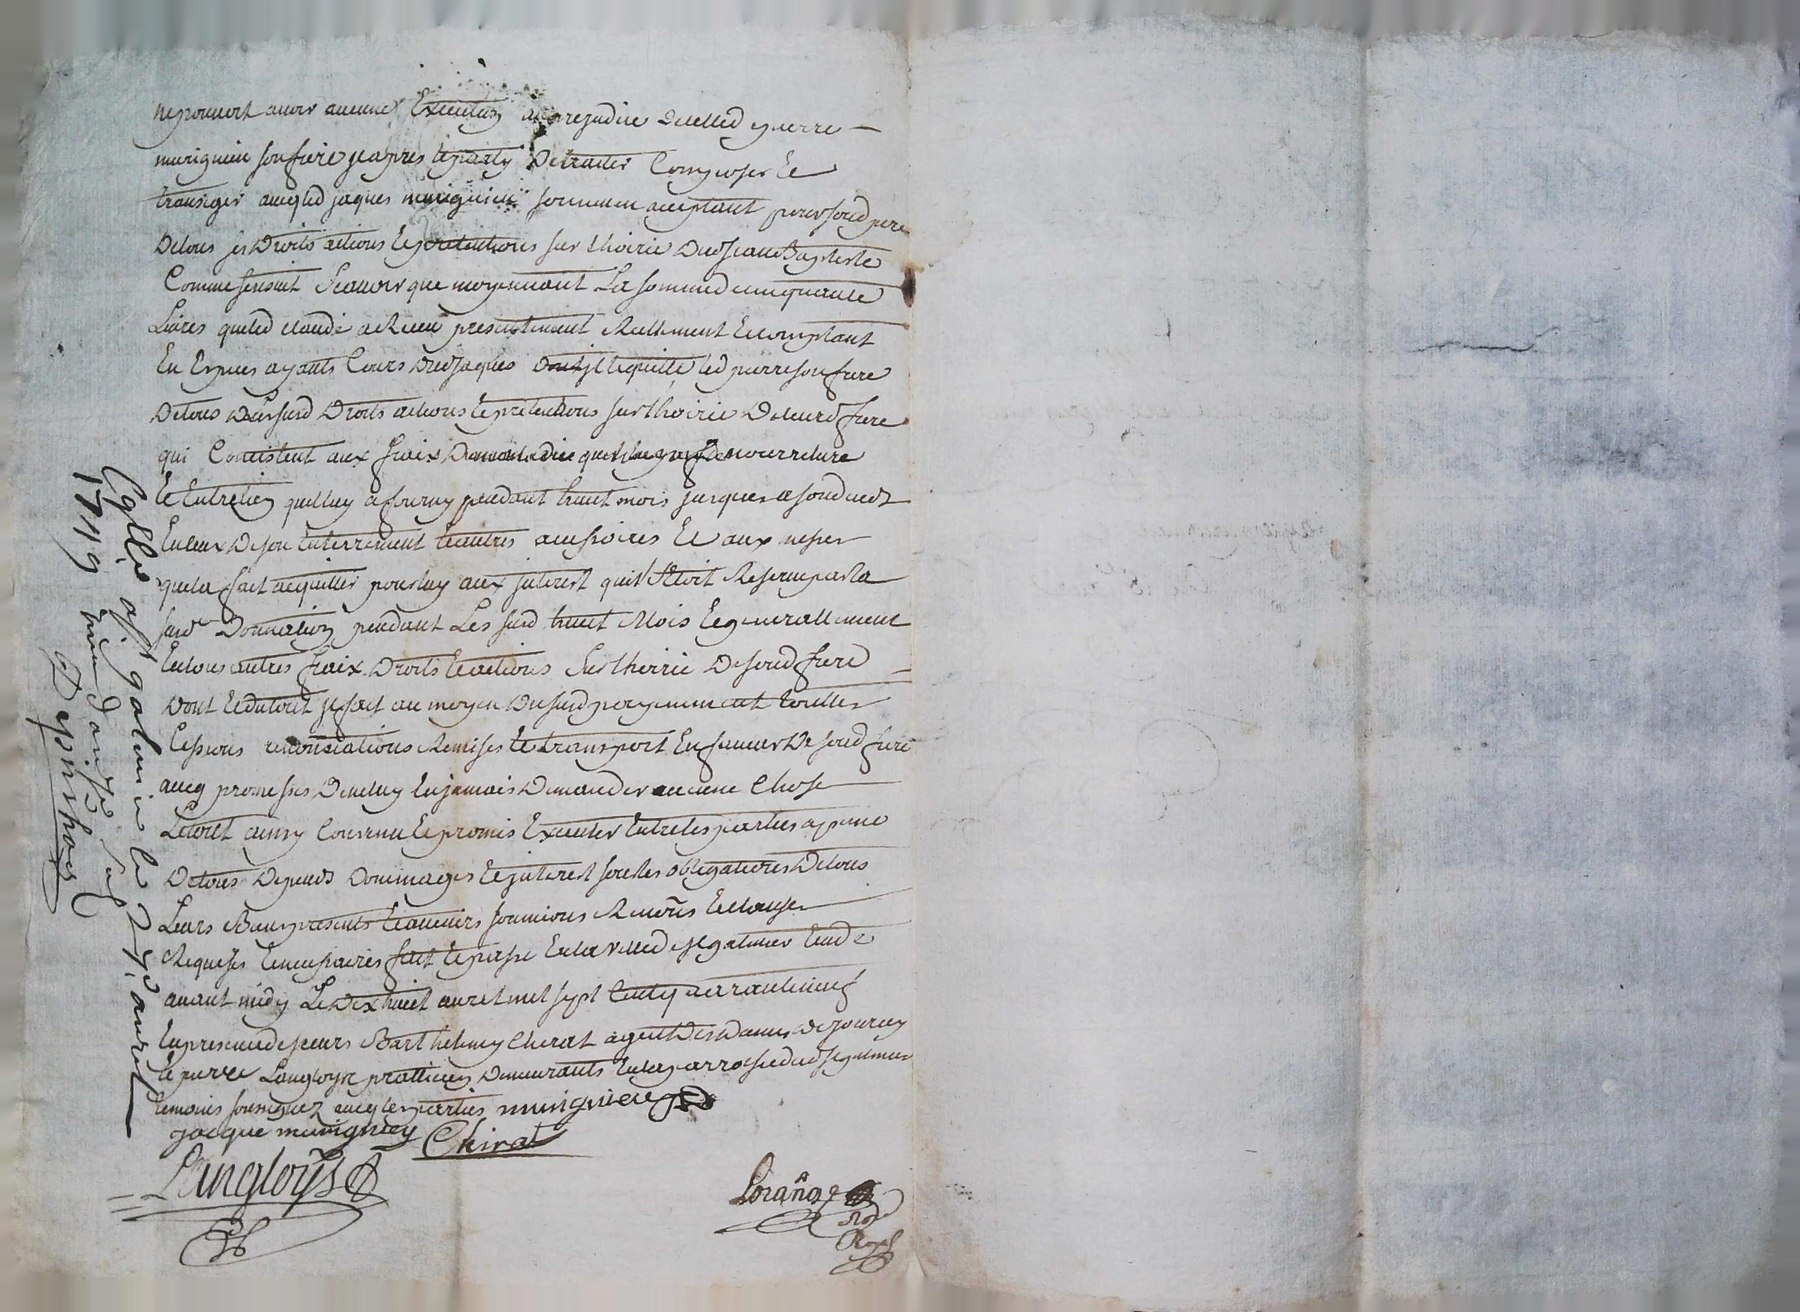 ne pouvoit avoir aucune Execution au prejudice dudled pierre
murignieu son frere jl a pris le party De traiter Composer Et
transiger avecq led jaques murignieu son neveu acceptant pour soud pere
De tous ses Droits actions Et pretentions sur l hoirie Dud Jean Baptiste
Comme sensuit Scavoir que moyennant La somme de cinquante
Livres que led claude a Receu presentement Reellement Et comptant
En Especes ayants Cours Dud Jaques Dont jl Equitte led pierre son frere
De tous Dessusd Droits actions Et pretentions sur l hoirie De leurd frere
qui Consistent aux fraix De maladie nourriture
Et Entretien quil luy a fourny pendant huit mois jusques a son deceds
En ceux De son Enterrement Et autres accessoires Et aux
quil a fait acquitter pour luy aux jnterest quil S Etoit Reserve par la
susd Donnation pendant Les susd huit Mois Et generallement
En tous autres fraix Droits Et actions Sur l heirie De soud frere
Dont Et du tout jl fait au moyen Du susd payement touttes
Cessions renonciations Remises Et transport En faveur De soud frere
avecq promesses De ne luy En jamais Demander aucune Chose
Le tout ainsy Convenu Et promis Executer Entre les parties a peine
De tous Depends Dommages Et jnterest sous les obligations De tous
Leurs Biens presents Et avenirs soumions Renons Et clauses
Requises Et necessaires fait Et passé En la ville de st galmier Etude
avant midy Le Dix huit avril mil sept Cent quarante neuf
En presence de sieurs Barthelemy Chirat agent Des Dames De Jourcey
Et pierre Langloys pratticien Demeurants En la parroisse dud st galmier
temoins soussignez avecq les parties murignieu
jacque murignieu Chirat
Langloys
Lorange
No.re
Royal
C.lle a st galmier le 27 avril
1749